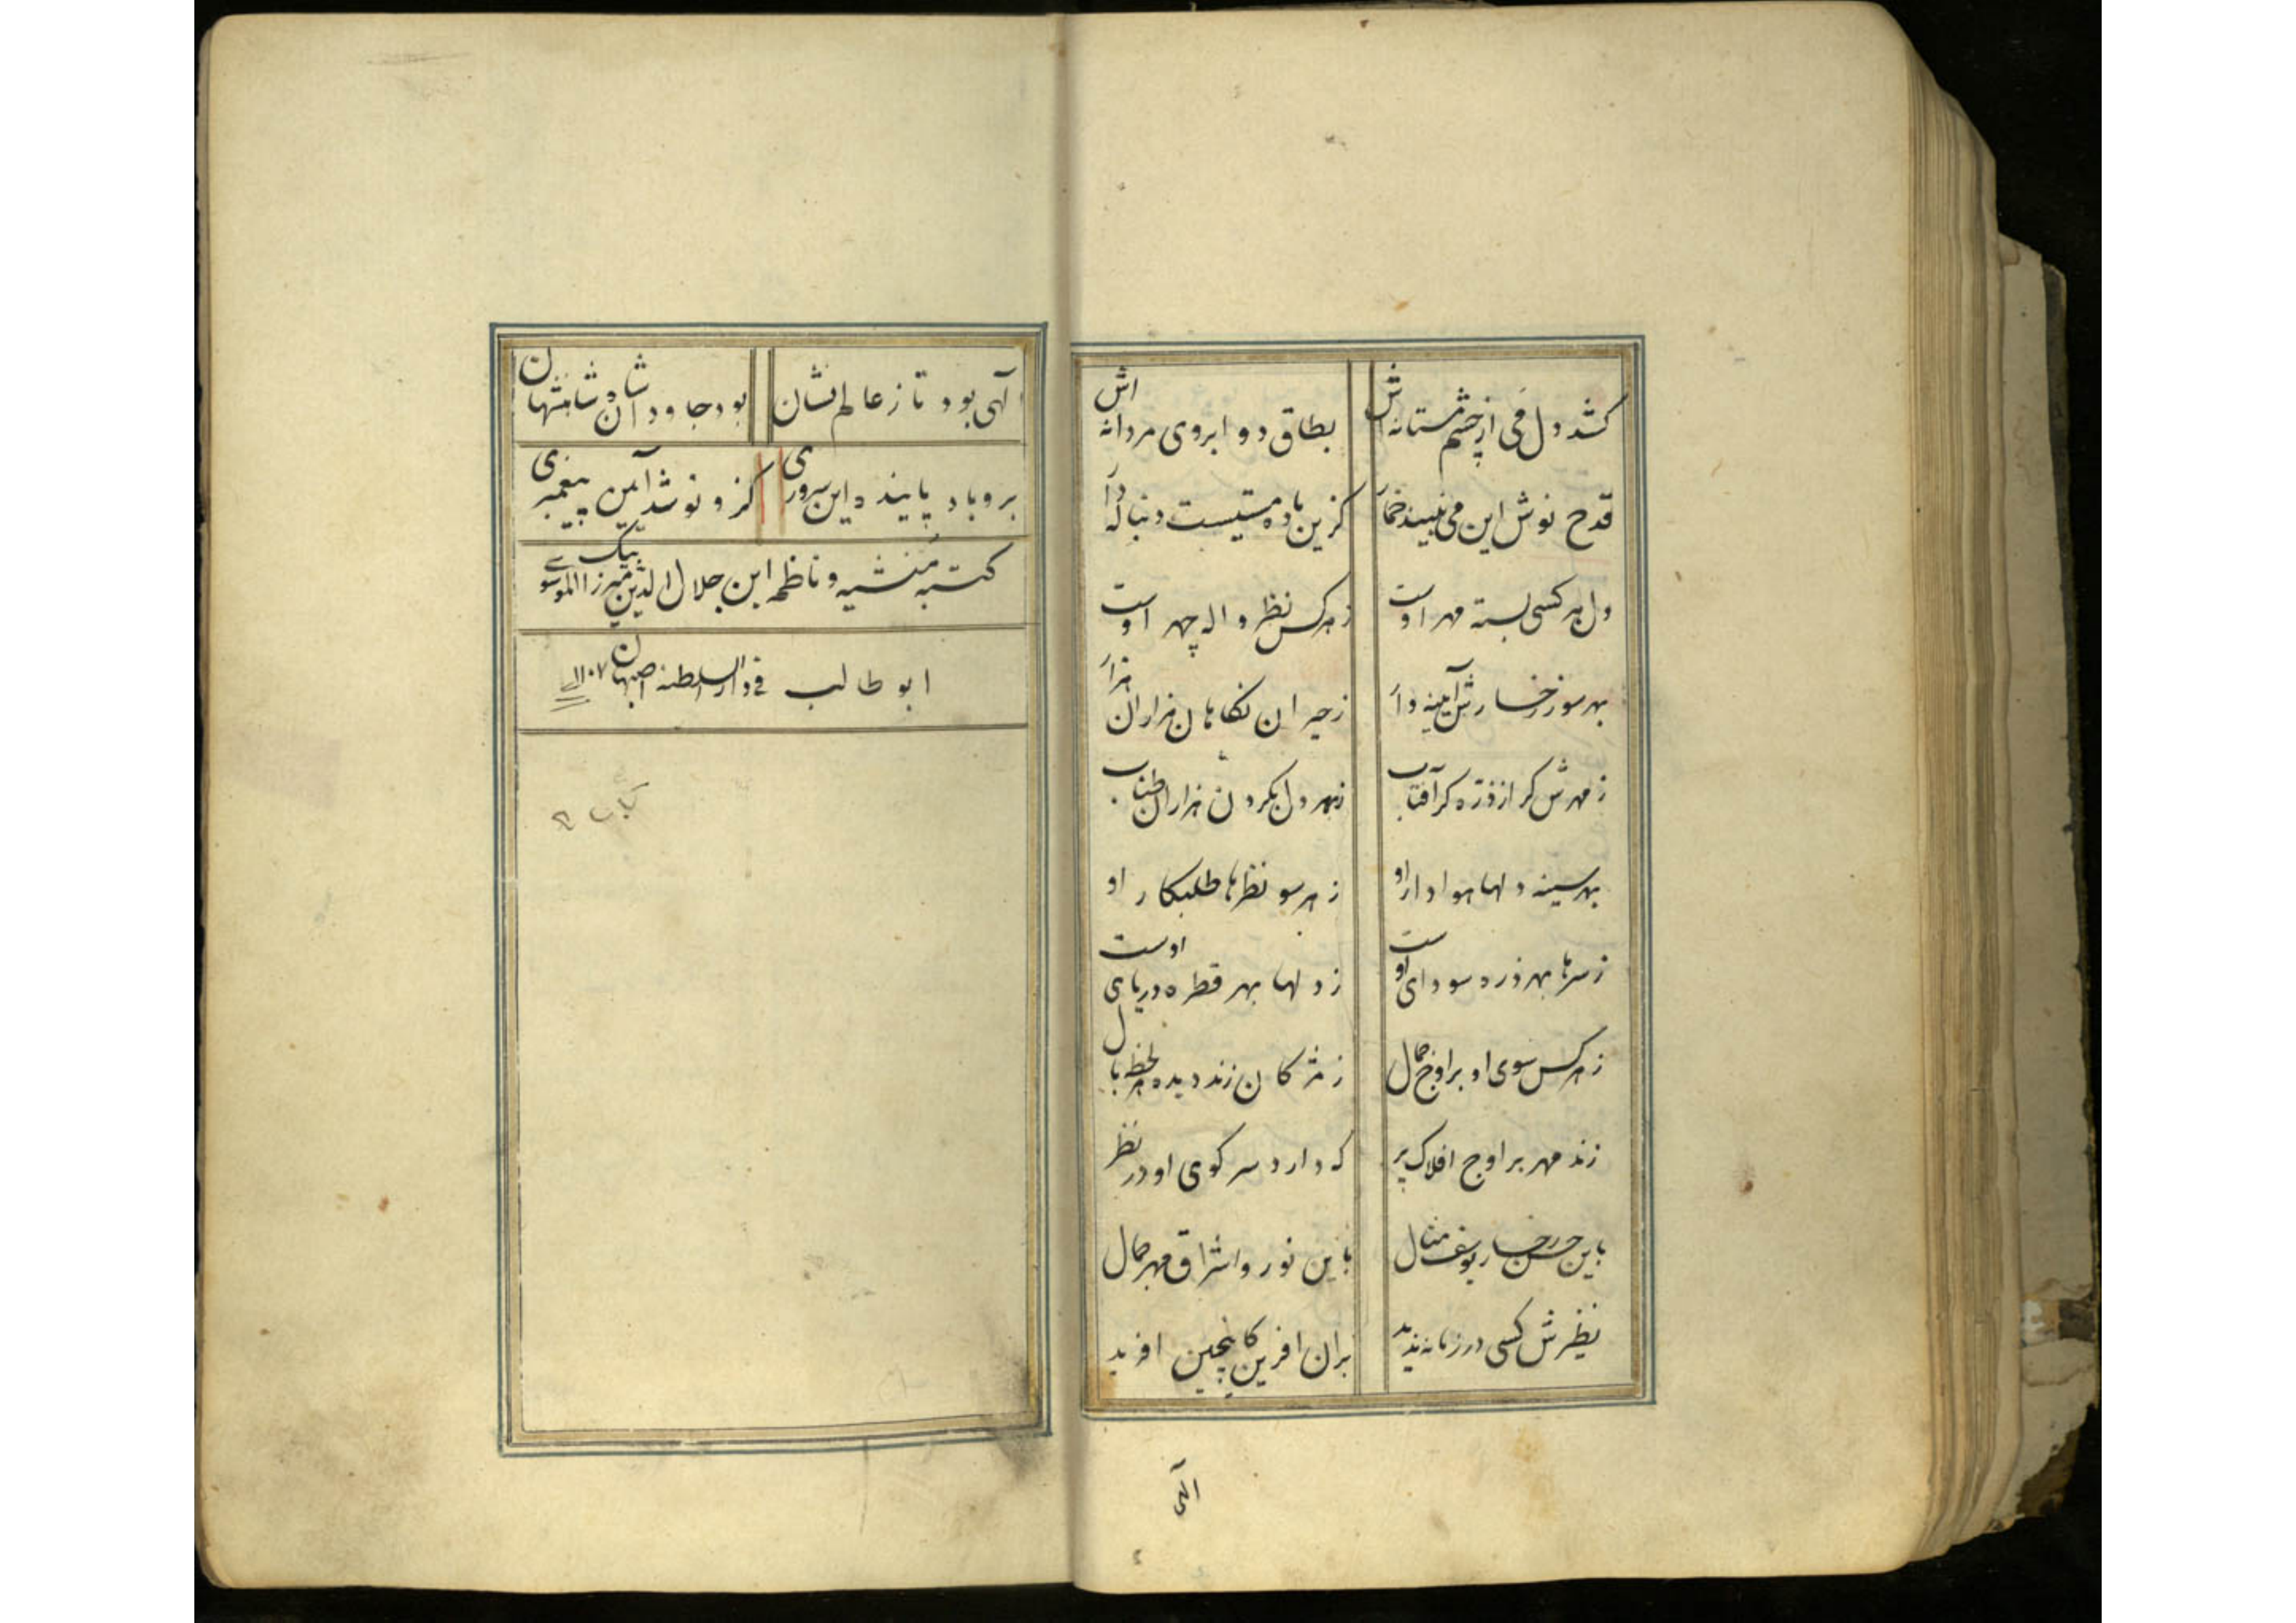 کشد دل می از چشم مستانه اش بطاق دو ابروی مردانه اش
قدح نوش این می نبیند خمار کزین باده مستیست دنباله دار
دل هر کسی بسته مهر اوست ز هر کس نظر واله چهر اوست
بهر سو ز رخسارش آیینه دار ز حیران نکاهان هزاران هزار
ز مهرش کر از ذره کر آفتاب بهر دل بکردن هزاران طناب
بهر سینه دلها هوادار او ز هر سو نظرها طلبکار او
ز سرها بهر ذره سودای اوست ز دلها بهر قطره دریای اوست
ز هر کس سوی او بر اوج جمال ز مژکان زند دیده هر لحظه بال
زند مهر بر اوج افلاک پر که دارد سر کوی او در نظر
باین حسن رخسار یوسف مثال باین نور و اشراق مهر جمال
نظیرش کسی در زمانه ندید بران افرین کاینچنین افرید
الهی
آلهی بود تا ز عالم نشان بود جاودان شاه شاهنشهان
برو باد پاینده این سروری کزو نو شد آیین پیغمبری
کتبه منشیه و ناظمه ابن جلال الدین میرزا بیک الموسوی
ابو طالب فی دار السلطنه اصبهان ۱۱۰۷
کتاب